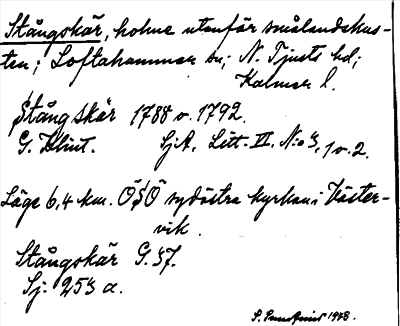 Stångskär, holme utanför smålandskus-
ten; Loftahammar sn; N. Tjusts hd;
Kalmar l.
Stång Skär 1788 o. 1792.
G. Klint. SjA. Litt. II. No 3, 1 o. 2.
Läge 6,4 km. ÖSÖ sydöstra kyrkan i Väster-
vik.
Stångskär G. 37.
Sj. 253 a.
S. 1948.